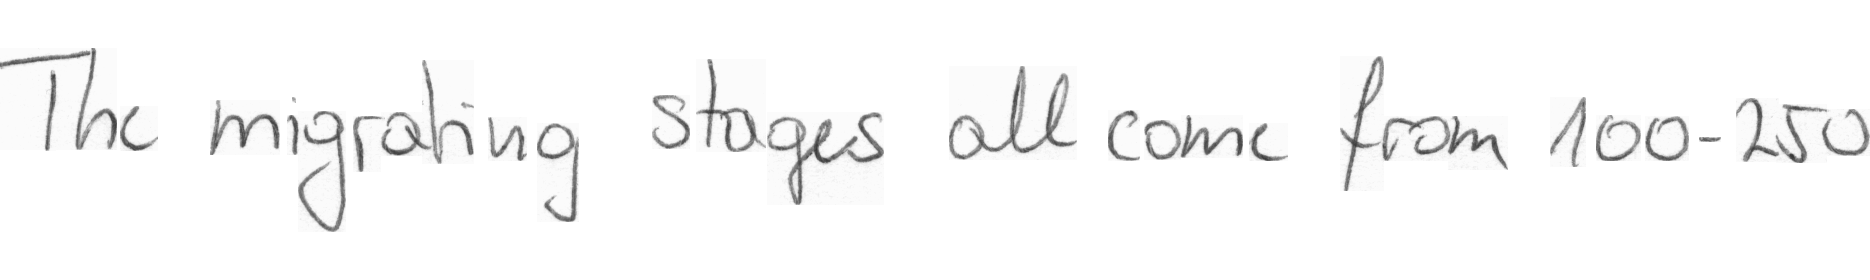 The migrating stages all come from 100-250